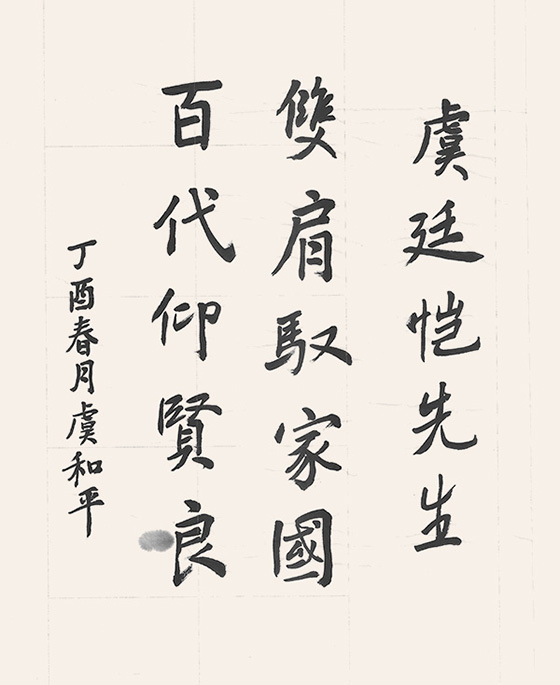 虞廷恺先生
雙肩馭家國
百代仰賢良
丁酉春月虞和平